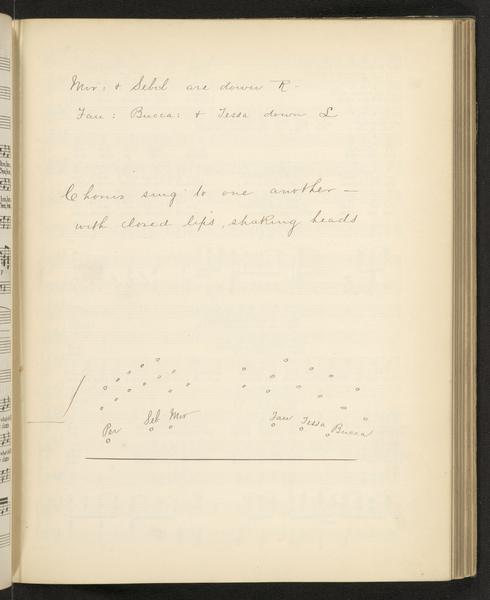 Mir: & Sebol are down R -
Fau: Bucca: & Tessa down L
Chorus sing to one another —
with closed lips, shaking heads
Per Seb Mir Fau Tessa Bucca